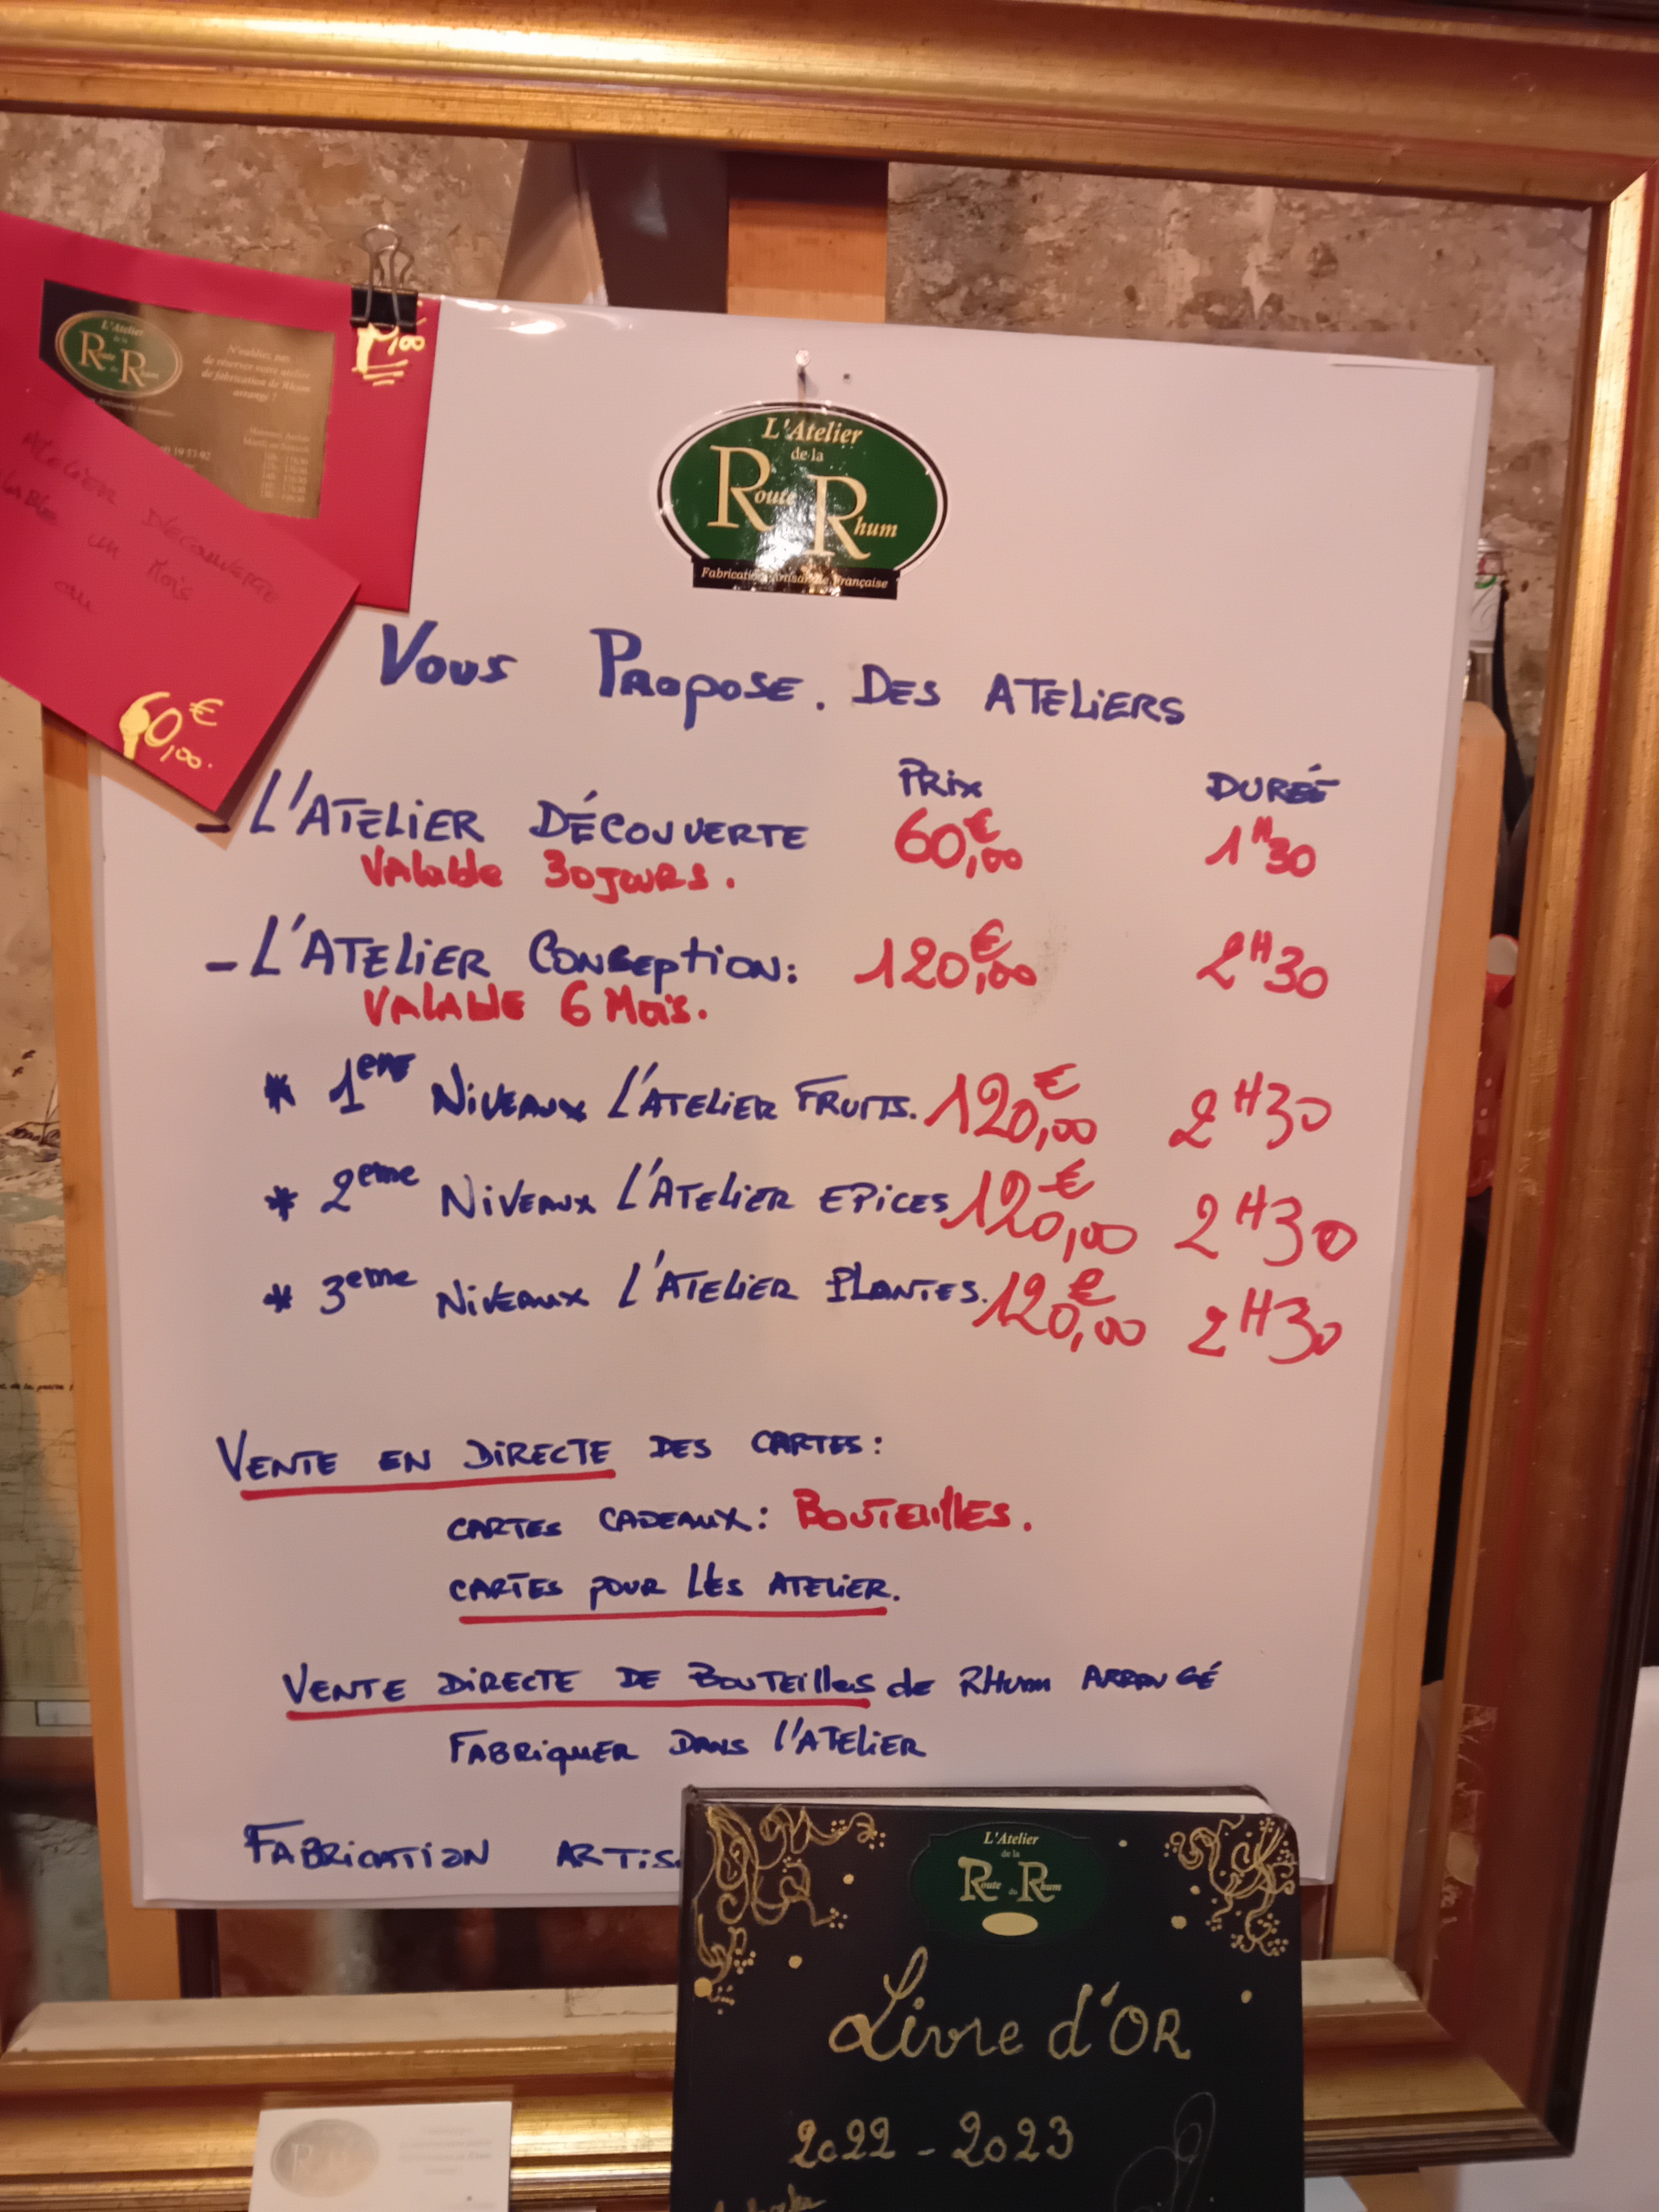 L'Atelier
de la
Route du Rhum
N'oubliez pas
de réserver votre atelier
de fabrication de Rhum
arrangé !
19 53 92
ATELIER DÉCOUVERTE
un Mois
ou
60,00 €
L'Atelier
de la
Route Rhum
Fabrication Artisanale Française
Vous Propose. DES ATELIERS
PRIX DURÉÉ
- L'ATELIER DÉCOUVERTE 60,00 € 1H30
VALABLE 30 JOURS.
- L'ATELIER CONSEPTION: 120,00 € 2H30
VALABLE 6 MOIS.
* 1ere NIVEAUX L'ATELIER FRUITS. 120,00 € 2H30
* 2eme NIVEAUX L'ATELIER EPICES 120,00 € 2H30
* 3eme NIVEAUX L'ATELIER PLANTES. 120,00 € 2H30
VENTE EN DIRECTE DES CARTES:
CARTES CADEAUX: BOUTEILLES.
CARTES POUR LES ATELIER.
VENTE DIRECTE DE BOUTEILLES de RHUM ARRANGÉ
FABRIQUER DANS L'ATELIER
FABRICATION ARTIS
L'Atelier
de la
Route du Rhum
Livre d'OR
2022 - 2023